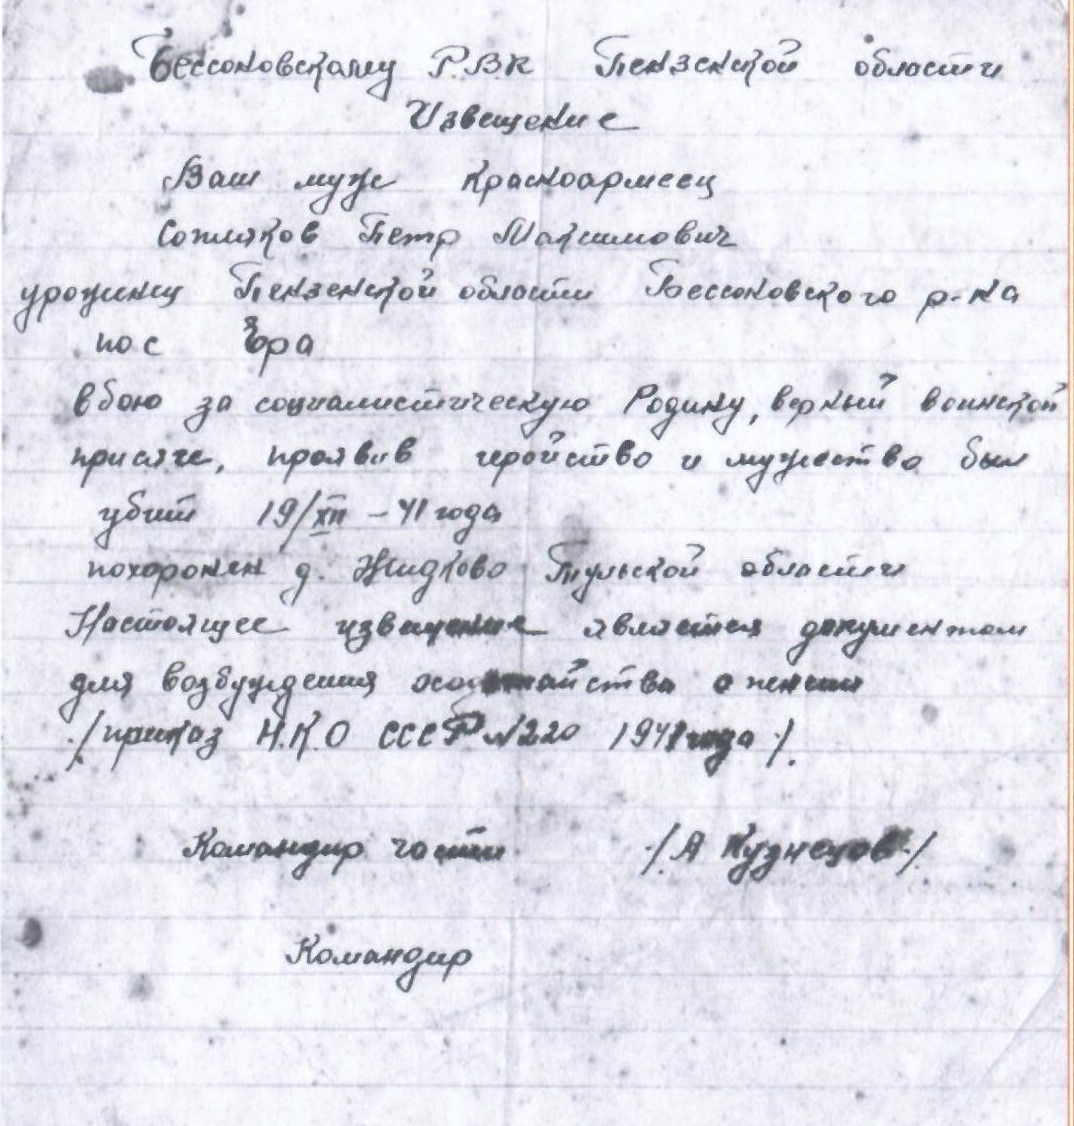 Бессоновскому Р.В.К Пензенской области
Извещение
Ваш муж красноармеец
Петр Максимович
уроженец Пензенской области Бессоновского р-на
пос
в бою за социалистическую Родину, верный воинской
присяге, проявив геройство и мужество был
убит 19/XII – 41 года
похоронен д. Жидково Тульской области
Настоящее извещение является документом
для возбуждения о пенсии
/приказ Н.К.О СССР №220 1941 года/.
Командир части /А Кузнецов/
Командир